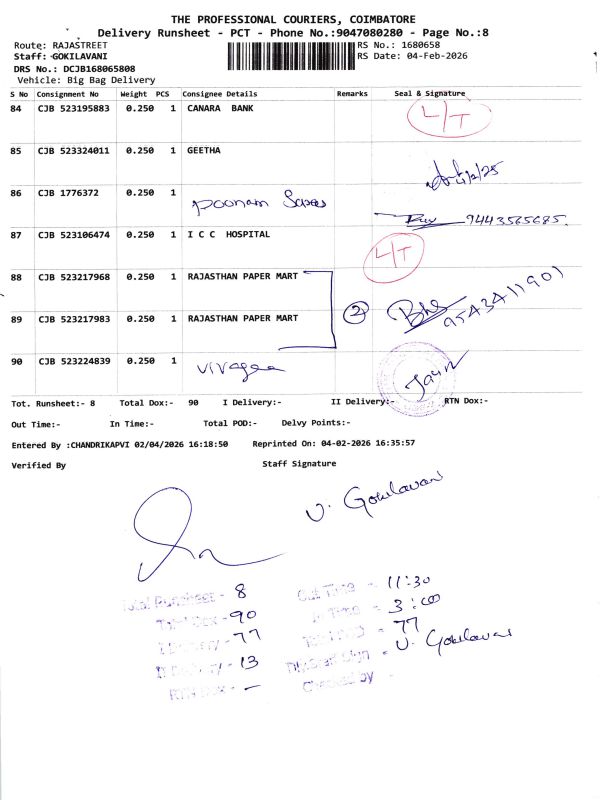 THE PROFESSIONAL COURIERS, COIMBATORE
Delivery Runsheet - PCT - Phone No.:9047080280 - Page No.:8
Route: RAJASTREET
RS No.: 1680658
Staff: GOKILAVANI
RS Date: 04-Feb-2026
DRS No.: DCJB168065808
Vehicle: Big Bag Delivery
S No Consignment No Weight PCS Consignee Details Remarks Seal & Signature
84 CJB 523195883 0.250 1 CANARA BANK L/T
85 CJB 523324011 0.250 1 GEETHA
86 CJB 1776372 0.250 1 Poonam 9443565685
87 CJB 523106474 0.250 1 I C C HOSPITAL L/T
88 CJB 523217968 0.250 1 RAJASTHAN PAPER MART
2 9543411901
89 CJB 523217983 0.250 1 RAJASTHAN PAPER MART
90 CJB 523224839 0.250 1
Tot. Runsheet:- 8 Total Dox:- 90 I Delivery:- II Delivery:- RTN Dox:-
Out Time:- In Time:- Total POD:- Delvy Points:-
Entered By :CHANDRIKAPVI 02/04/2026 16:18:50 Reprinted On: 04-02-2026 16:35:57
Verified By Staff Signature
V. Gokilavani
Total Runsheet - 8 Out Time - 11:30
Total Dox - 90 In Time - 3:00
I Delivery - 77 Total POD - 77
II Delivery - 13 Dlv.Staff Sign - V. Gokilavani
RTN Dox - — Checked by -